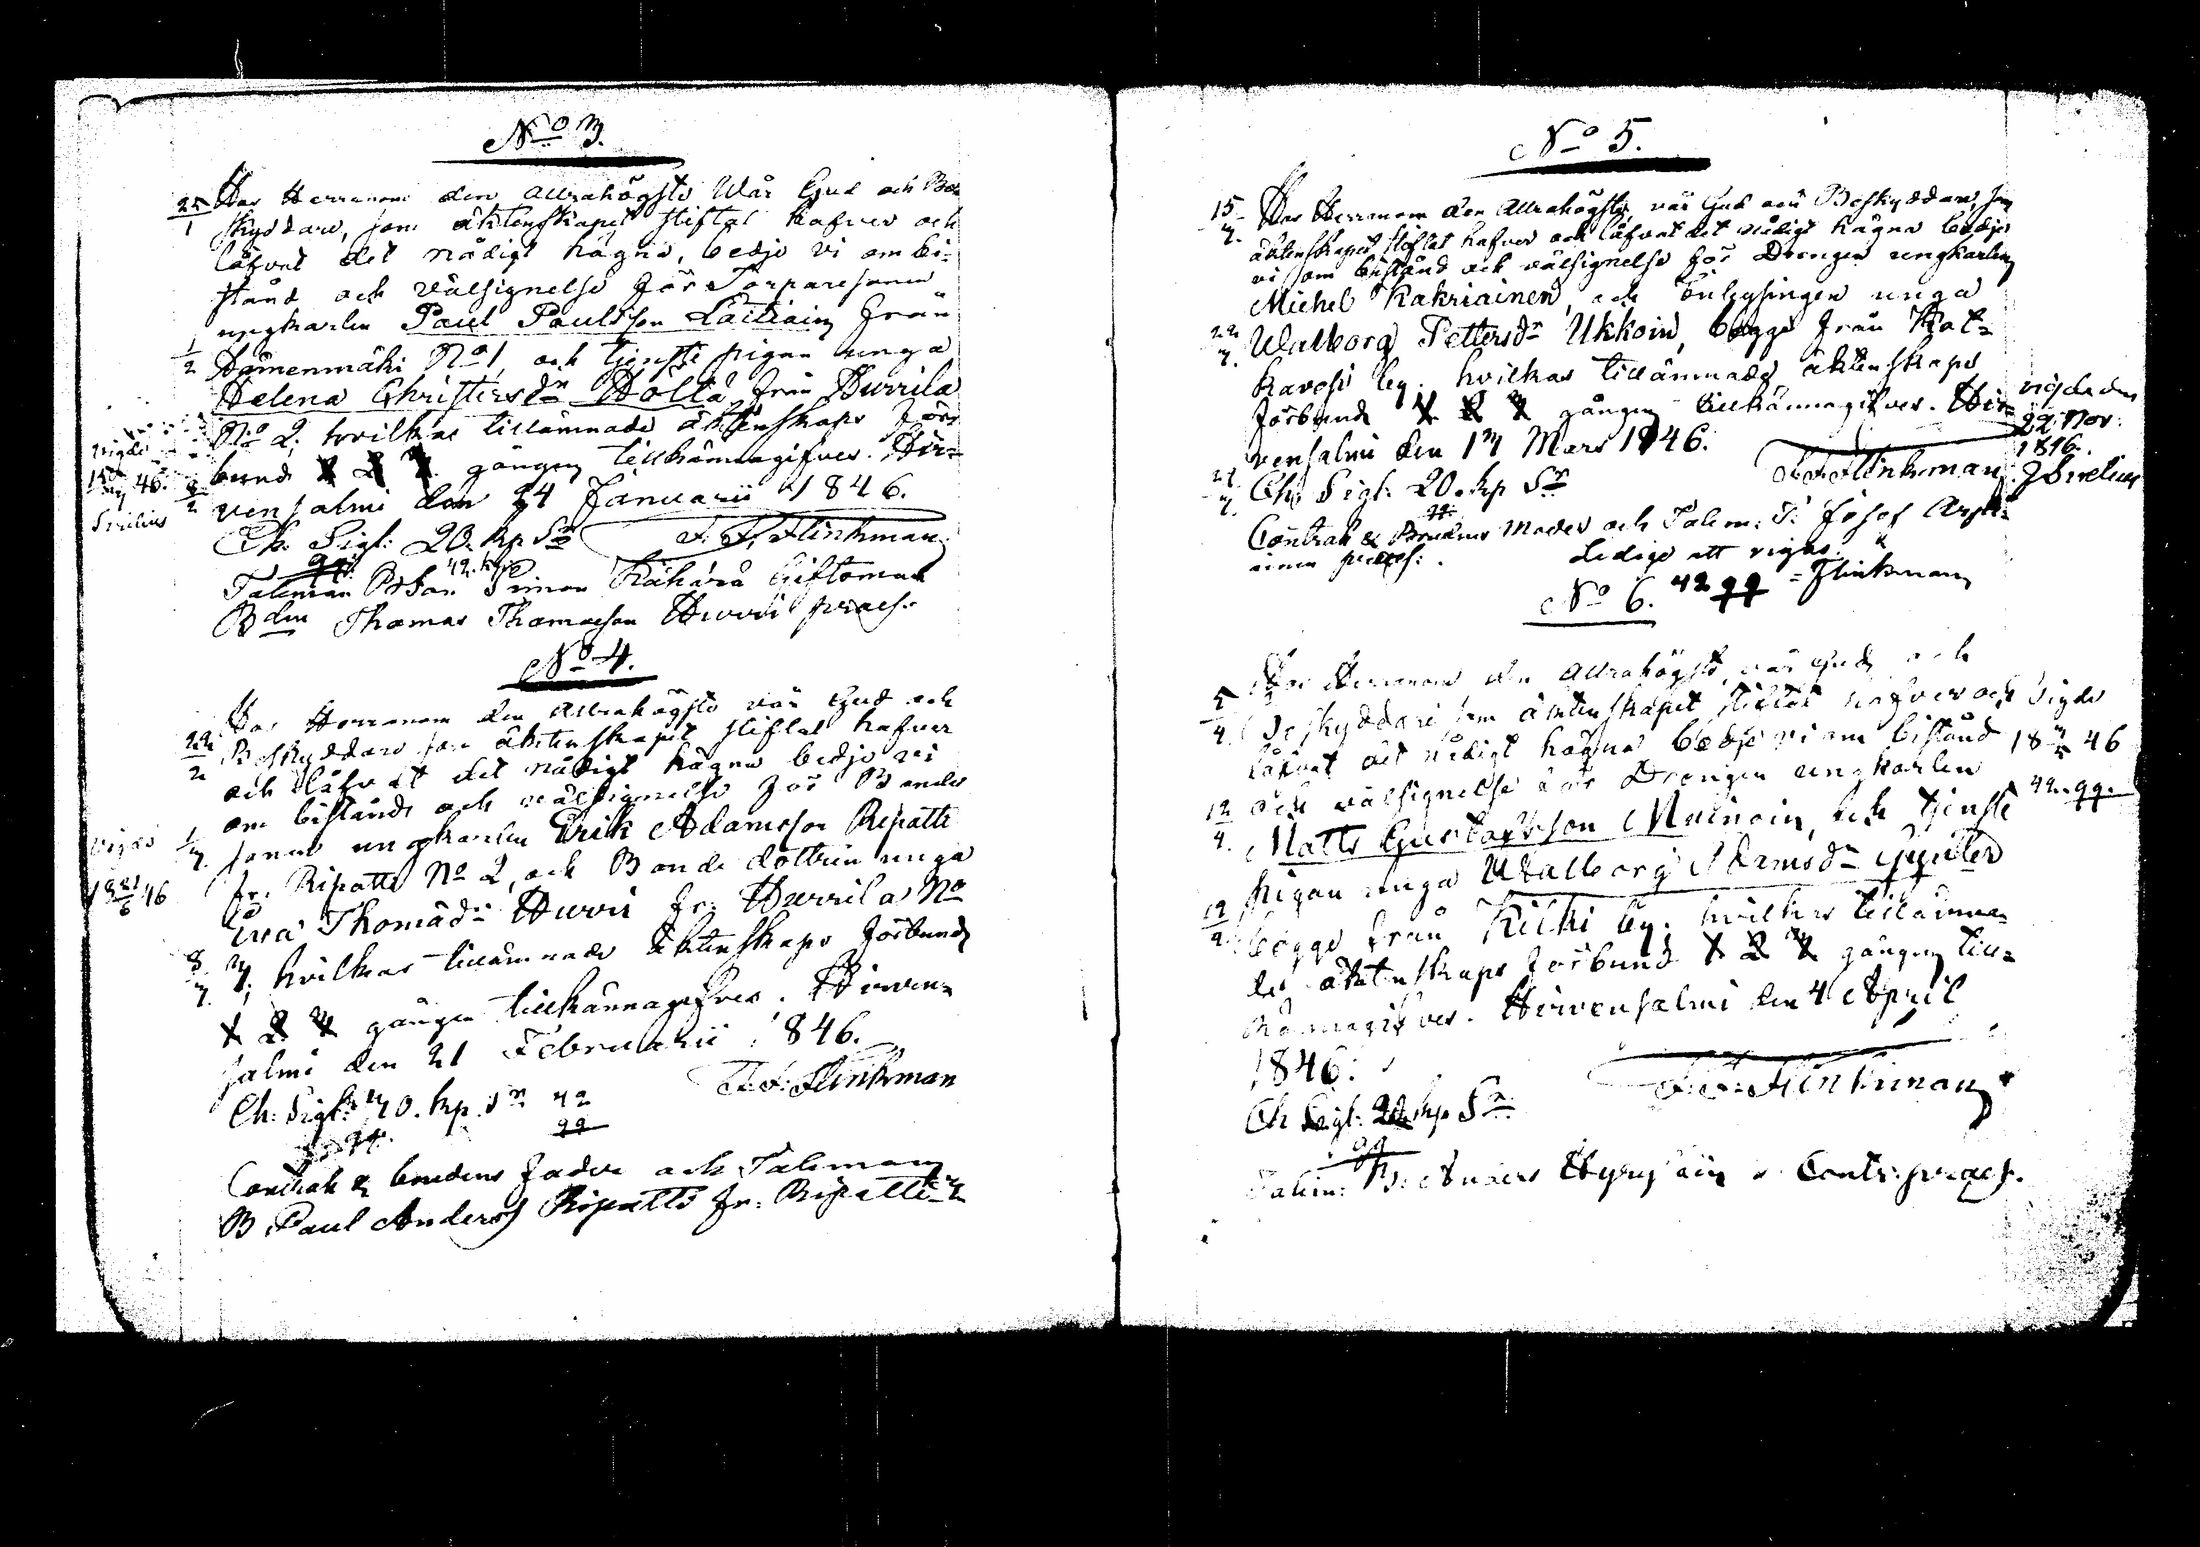 No 3.
25/1 Hos Herranom den Allrahögste Wår Gud och Be-
skyddare, som äktenskapet stiftat hafver och
låfvat det nådigt hägna, bedje vi om bi-
stånd och välsignelse för Torparesonen
ungkarlen Paul Paulsson Laitiain från
1/2 Hämenmäki No 1, och tjenste pigan unga
Helena Christersdr Hölttä från Hurrila
No 2, hvilkas tillämnade äktenskaps för-
bund 1 2 3 gången tillkännagifves. Hir-
8/2 vensalmi den 24 Januarii 1846.
vigde
46.
Sirelius
Ch. Sigl: 20. kp Sr F. F. Flinkman
Taleman Simon Kähärä Giftoman
Bdn Thomas Thomasson Hurri præs.
No 4.
Hos Herranom den Allrahögste vår Gud och
22/2 Beskyddare som äktenskapet stiftat hafver
och låfvat det nådigt hägna bedje vi
om bistånd och välsignelse för Bonde
1/3 sonen ungkarlen Erik Adamsson Ripatti
fr. Ripatti No 2, och Bonde dottren unga
Eva Thomädr Hurri fr. Hurrila No
8/3 3, hvilkas tillämnade äktenskaps förbund
1 2 3 gången tillkännagifves. Hirven-
salmi den 21 Februarii 1846.
vigde
46
Ch: Sigl: 20. kp. Sr 42 F. F. Flinkman
Contrah & brudens fader och Taleman
B Paul Anderss Ripatti fr. Ripatti
No 5.
15/3. Hos Herranom den Allrahögste, vår Gud och Beskyddare, som
äktenskapet stiftat hafver och låfvat det nådigt hägna bedje
vi om bistånd och välsignelse för Drengen ungkarlen
Michel Kakriainen, och Inhysingen unga
22/3. Walborg Pettersdr Ukkoin, begge från Kot-
kavesi by. hvilkas tillämnade äktenskaps
förbund 1 2 3 gången tillkännagifves. Hir-
vensalmi den 14 Mars 1846.
vigde den
22 Nov:
1846.
J Sirelius
Ch: Sigl: 20. kp Sr F. F. Flinkman
Contrah & Brudens Moder och Talem: Josef
præs: Ledige att vigas.
Flinkman
No 6.
Hos Herranom den Allrahögste, vår Gud och
5/4. Beskyddare som äktenskapet stiftat hafver och
låfvat det nådigt hägna bedje vi om bistånd
12/4. och välsignelse för Drengen ungkarlen
Matts Gustafsson Muinoin, och tjenste
pigan unga Walborg
19/4. begge från Kilki by, hvilkas tillämna-
de äktenskaps förbund 1 2 3 gången till-
kännagifves. Hirvensalmi den 4 April
1846.
Vigde
18 46
Ch Sigl: 20 kp Sr. F. F. Flinkman
Talem: B: Anders Hyryläin & Contr: præs.